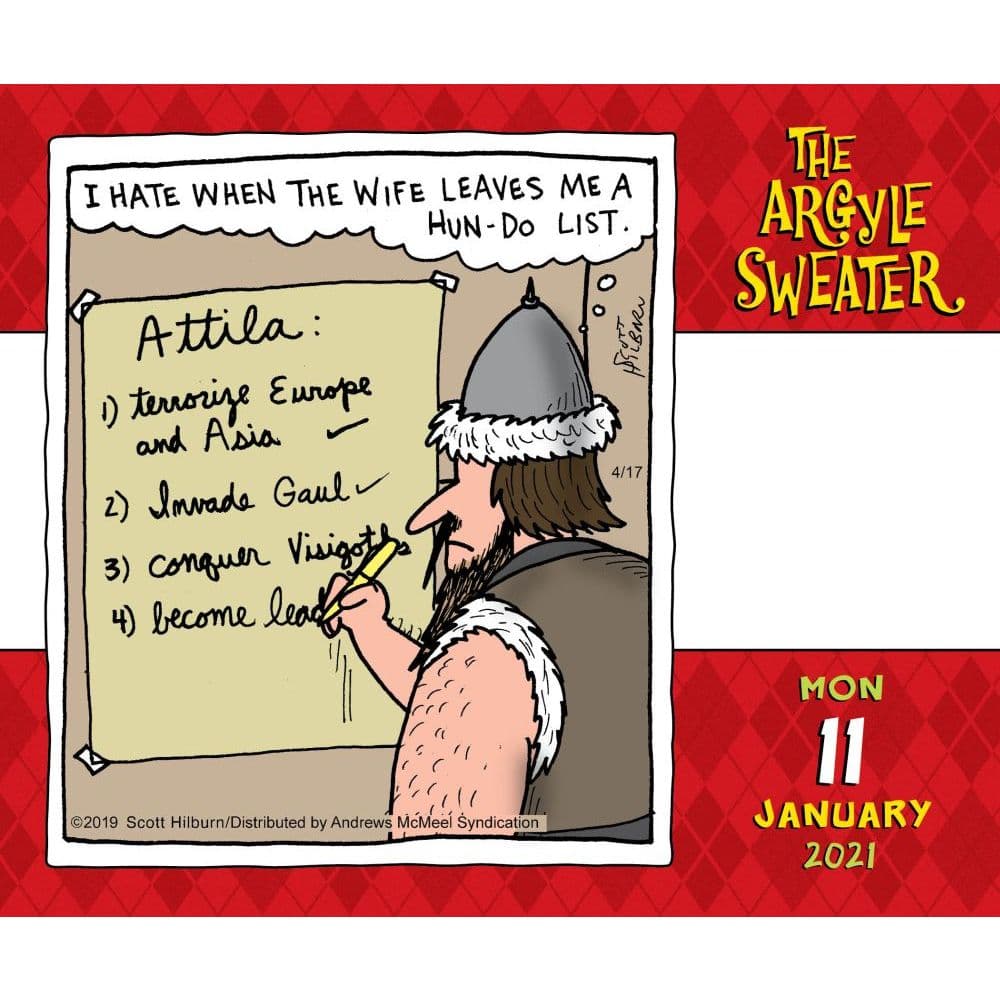 I HATE WHEN THE WIFE LEAVES ME A
HUN-DO LIST.
Attila:
1) terrorize Europe
and Asia
2) Invade Gaul
3) conquer Visigoths
4) become
SCOTT
HILBURN
4/17
©2019 Scott Hilburn/Distributed by Andrews McMeel Syndication
THE
ARGYLE
SWEATER
MON
11
JANUARY
2021